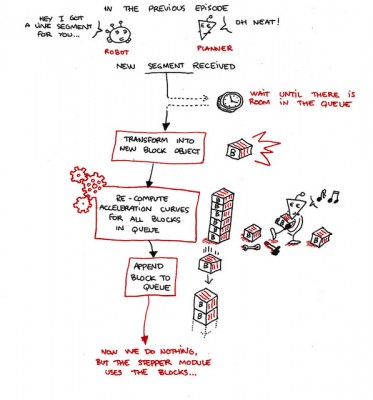 IN THE PREVIOUS EPISODE
HEY I GOT
A LINE SEGMENT
FOR YOU...
OH NEAT!
ROBOT
PLANNER
NEW SEGMENT RECEIVED
WAIT UNTIL THERE IS
ROOM IN THE QUEUE
TRANSFORM INTO
NEW BLOCK OBJECT
B
RE-COMPUTE
ACCELERATION CURVES
FOR ALL BLOCKS
IN QUEUE
B
B
B
B
B
B
B
B
APPEND
BLOCK TO
QUEUE
B
B
B
NOW WE DO NOTHING,
BUT THE STEPPER MODULE
USES THE BLOCKS...